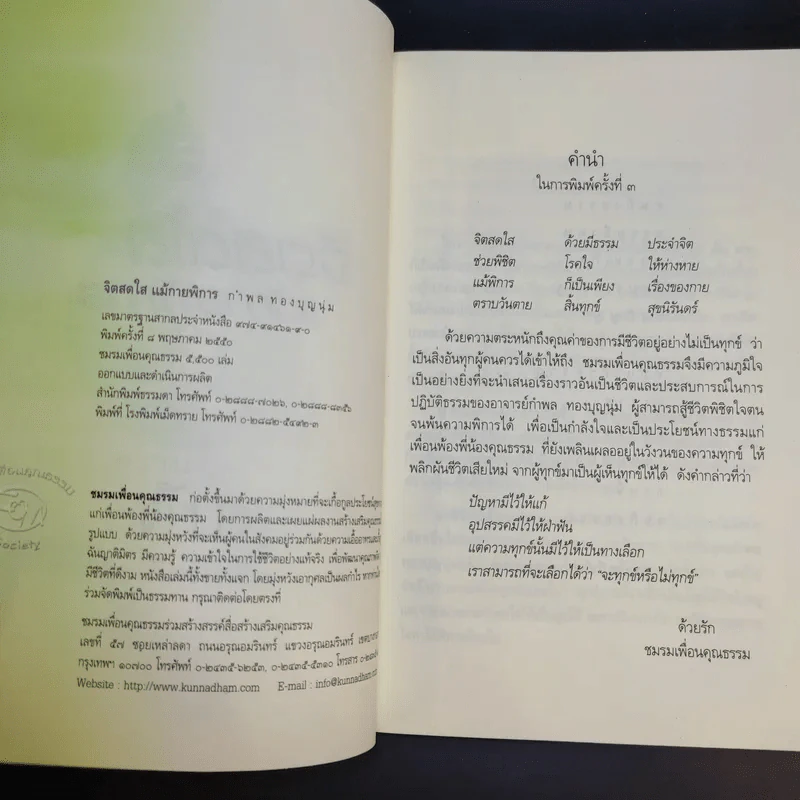 จิตสดใส แม้กายพิการ กำพล ทองบุญนุ่ม
เลขมาตรฐานสากลประจำหนังสือ ๙๗๔-๙๑๔๖๑-๙-๐
พิมพ์ครั้งที่ ๘ พฤษภาคม ๒๕๕๐
ชมรมเพื่อนคุณธรรม ๕,๕๐๐ เล่ม
ออกแบบและดำเนินการผลิต
สำนักพิมพ์ธรรมดา โทรศัพท์ ๐-๒๘๘๘-๗๐๒๖, ๐-๒๘๘๘-๘๓๕๖
พิมพ์ที่ โรงพิมพ์เม็ดทราย โทรศัพท์ ๐-๒๘๘๒-๕๔๙๒-๓
ชมรมเพื่อนคุณธรรม ก่อตั้งขึ้นมาด้วยความมุ่งหมายที่จะเกื้อกูลประโยชน์สุข
แก่เพื่อนพ้องพี่น้องคุณธรรม โดยการผลิตและเผยแผ่ผลงานสร้างเสริมคุณธรรม
รูปแบบ ด้วยความมุ่งหวังที่จะเห็นผู้คนในสังคมอยู่ร่วมกันด้วยความเอื้ออาทร
ฉันญาติมิตร มีความรู้ ความเข้าใจในการใช้ชีวิตอย่างแท้จริง เพื่อพัฒนาคุณภาพ
มีชีวิตที่ดีงาม หนังสือเล่มนี้ทั้งขายทั้งแจก โดยมุ่งหวังเอากุศลเป็นผลกำไร
ร่วมจัดพิมพ์เป็นธรรมทาน กรุณาติดต่อโดยตรงที่
ชมรมเพื่อนคุณธรรมร่วมสร้างสรรค์สื่อสร้างเสริมคุณธรรม
เลขที่ ๕๗ ซอยเหล่าลดา ถนนอรุณอมรินทร์ แขวงอรุณอมรินทร์
กรุงเทพฯ ๑๐๗๐๐ โทรศัพท์ ๐-๒๔๓๕-๖๒๕๓, ๐-๒๔๓๕-๕๓๑๐ โทรสาร
Website : http://www.kunnadham.com E-mail : info@kunnadham.com
คำนำ
ในการพิมพ์ครั้งที่ ๓
จิตสดใส ด้วยมีธรรม ประจำจิต
ช่วยพิชิต โรคใจ ให้ห่างหาย
แม้พิการ ก็เป็นเพียง เรื่องของกาย
ตราบวันตาย สิ้นทุกข์ สุขนิรันดร์
ด้วยความตระหนักถึงคุณค่าของการมีชีวิตอยู่อย่างไม่เป็นทุกข์ ว่า
เป็นสิ่งอันทุกผู้คนควรได้เข้าให้ถึง ชมรมเพื่อนคุณธรรมจึงมีความภูมิใจ
เป็นอย่างยิ่งที่จะนำเสนอเรื่องราวอันเป็นชีวิตและประสบการณ์ในการ
ปฏิบัติธรรมของอาจารย์กำพล ทองบุญนุ่ม ผู้สามารถสู้ชีวิตพิชิตใจตน
จนพ้นความพิการได้ เพื่อเป็นกำลังใจและเป็นประโยชน์ทางธรรมแก่
เพื่อนพ้องพี่น้องคุณธรรม ที่ยังเพลินเผลออยู่ในวังวนของความทุกข์ ให้
พลิกผันชีวิตเสียใหม่ จากผู้ทุกข์มาเป็นผู้เห็นทุกข์ให้ได้ ดังคำกล่าวที่ว่า
ปัญหามีไว้ให้แก้
อุปสรรคมีไว้ให้ฝ่าฟัน
แต่ความทุกข์นั้นมีไว้ให้เป็นทางเลือก
เราสามารถที่จะเลือกได้ว่า "จะทุกข์หรือไม่ทุกข์"
ด้วยรัก
ชมรมเพื่อนคุณธรรม